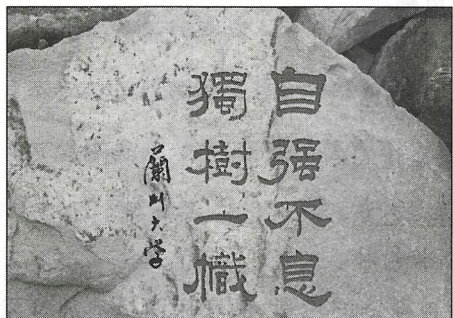 自强不息
獨樹一幟
蘭州大学